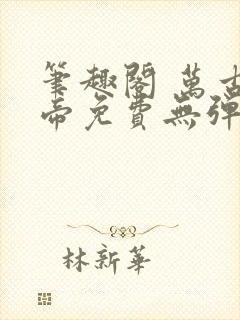 筆趣閣 萬古
帝免費無彈
林新華